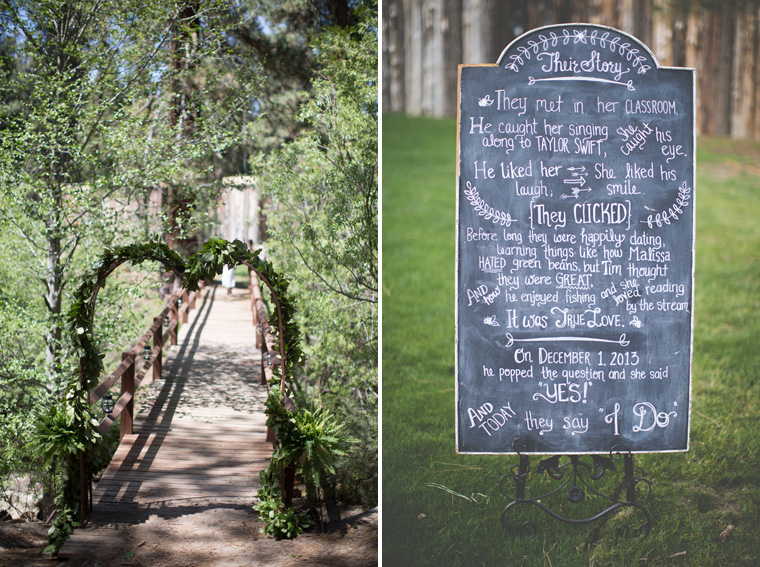 Their Story
They met in her CLASSROOM.
He caught her singing
along to TAYLOR SWIFT,
she caught his
eye.
He liked her
laugh;
She liked his
smile.
{They CLICKED}
Before long they were happily dating,
learning things like how Malissa
HATED green beans, but Tim thought
they were GREAT.
AND how
he enjoyed fishing
and she loved
reading
by the stream.
It was True Love.
ON DECEMBER 1, 2013
he popped the question and she said
"YES!"
AND TODAY
they say "I Do"